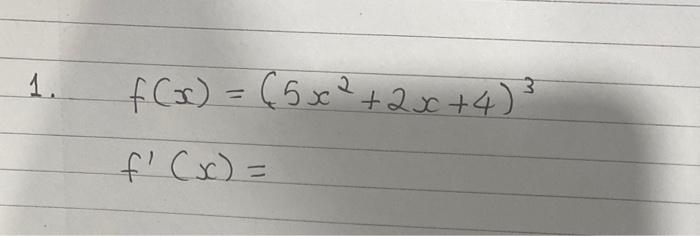 1. f(x) = (5x²+2x+4)³
f'(x) =